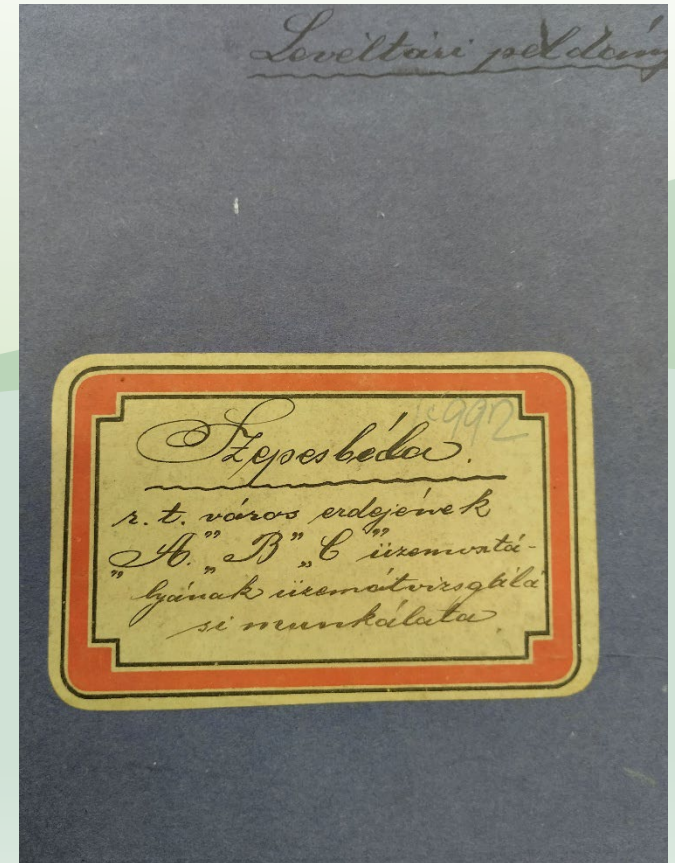 Levéltári példány
992
Szepesbéla.
r. t. város erdejének
„A." „B" „C" üzemosztá-
lyának üzemátvizsgálá
si munkálata